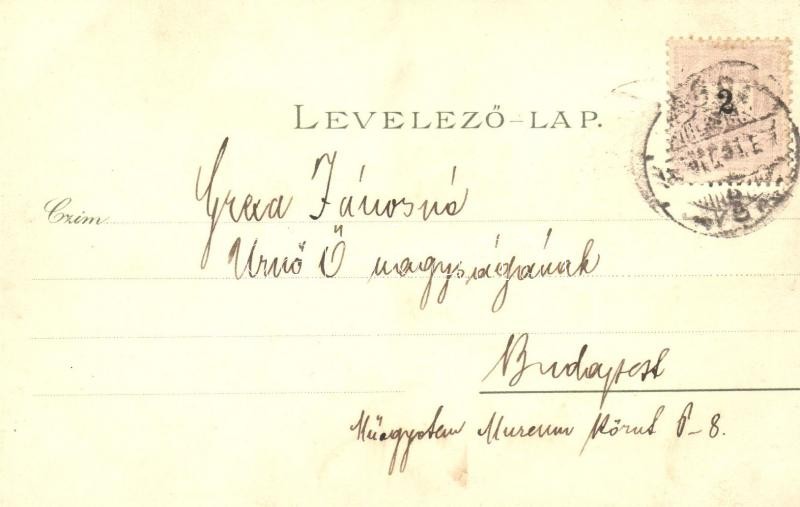 LEVELEZŐ-LAP.
2
Czim
Grexa Jánosné
Urnő Ő nagyságának
Budapest
Műegyetem Muzeum körut 6-8.